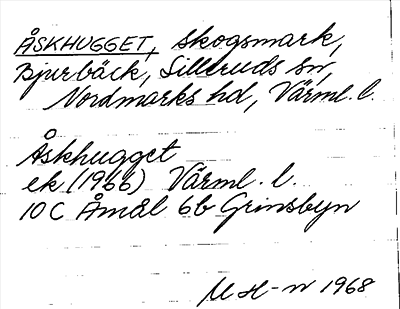 ÅSKHUGGET, skogsmark,
Bjurbäck, Silleruds sn,
Nordmarks hd, Värml. l.
Åskhugget
ek (1966) Värml. l.
10C Åmål 6b Grinsbyn
M H-n 1968